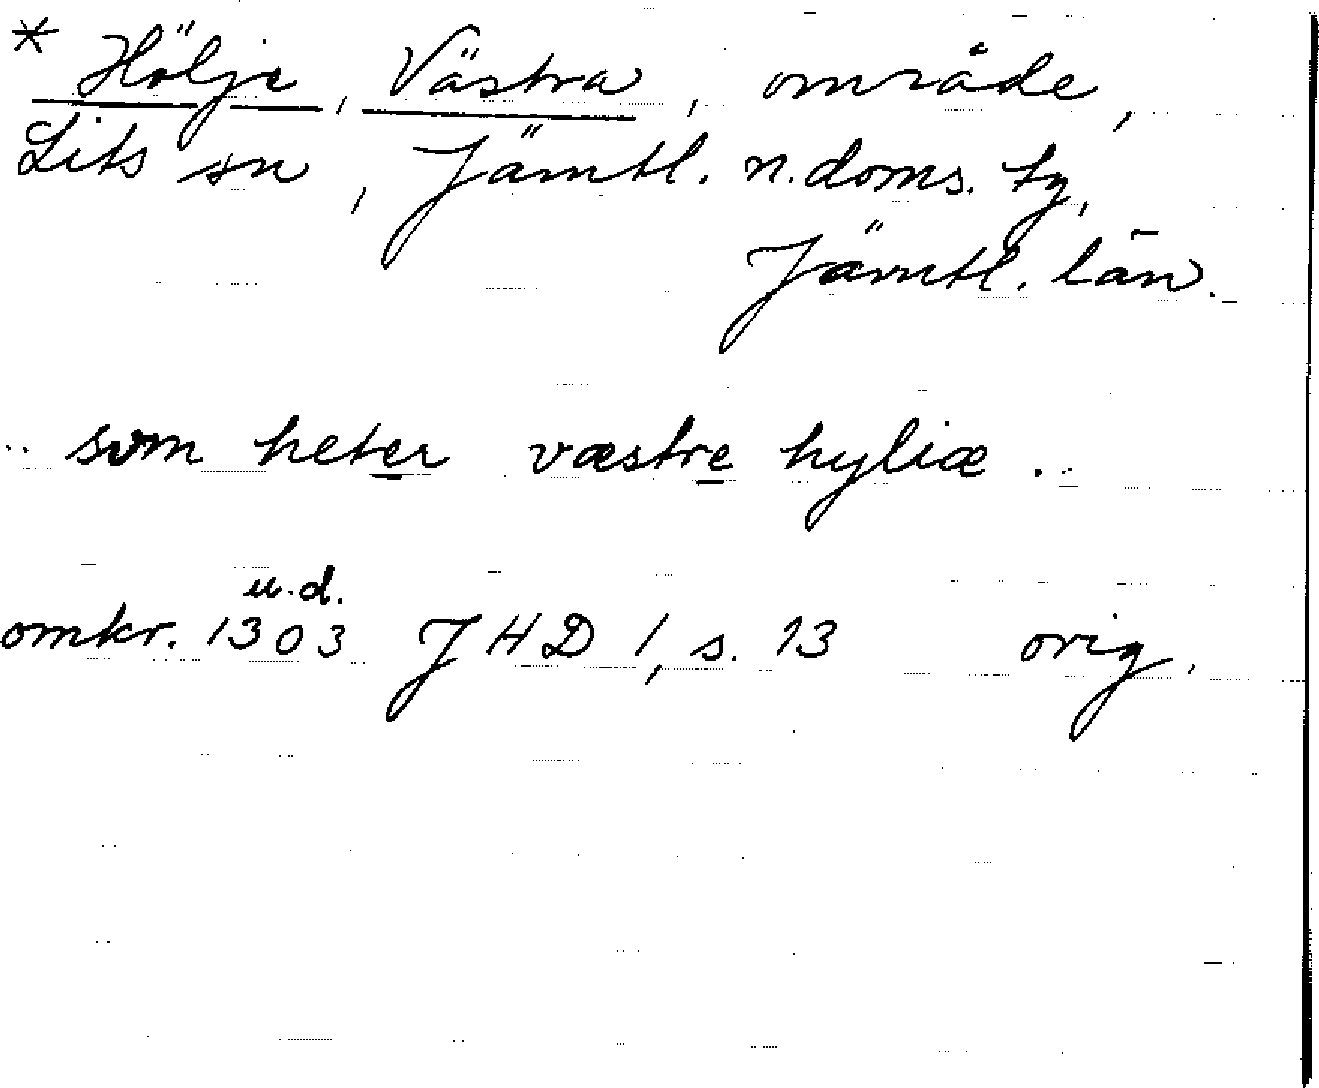 * Hölje, Västra, område,
Lits sn, Jämtl. n. doms. tg,
Jämtl. län.
.. som heter væstre hyliæ ..
u.d.
omkr. 1303 JHD 1, s. 13 orig.